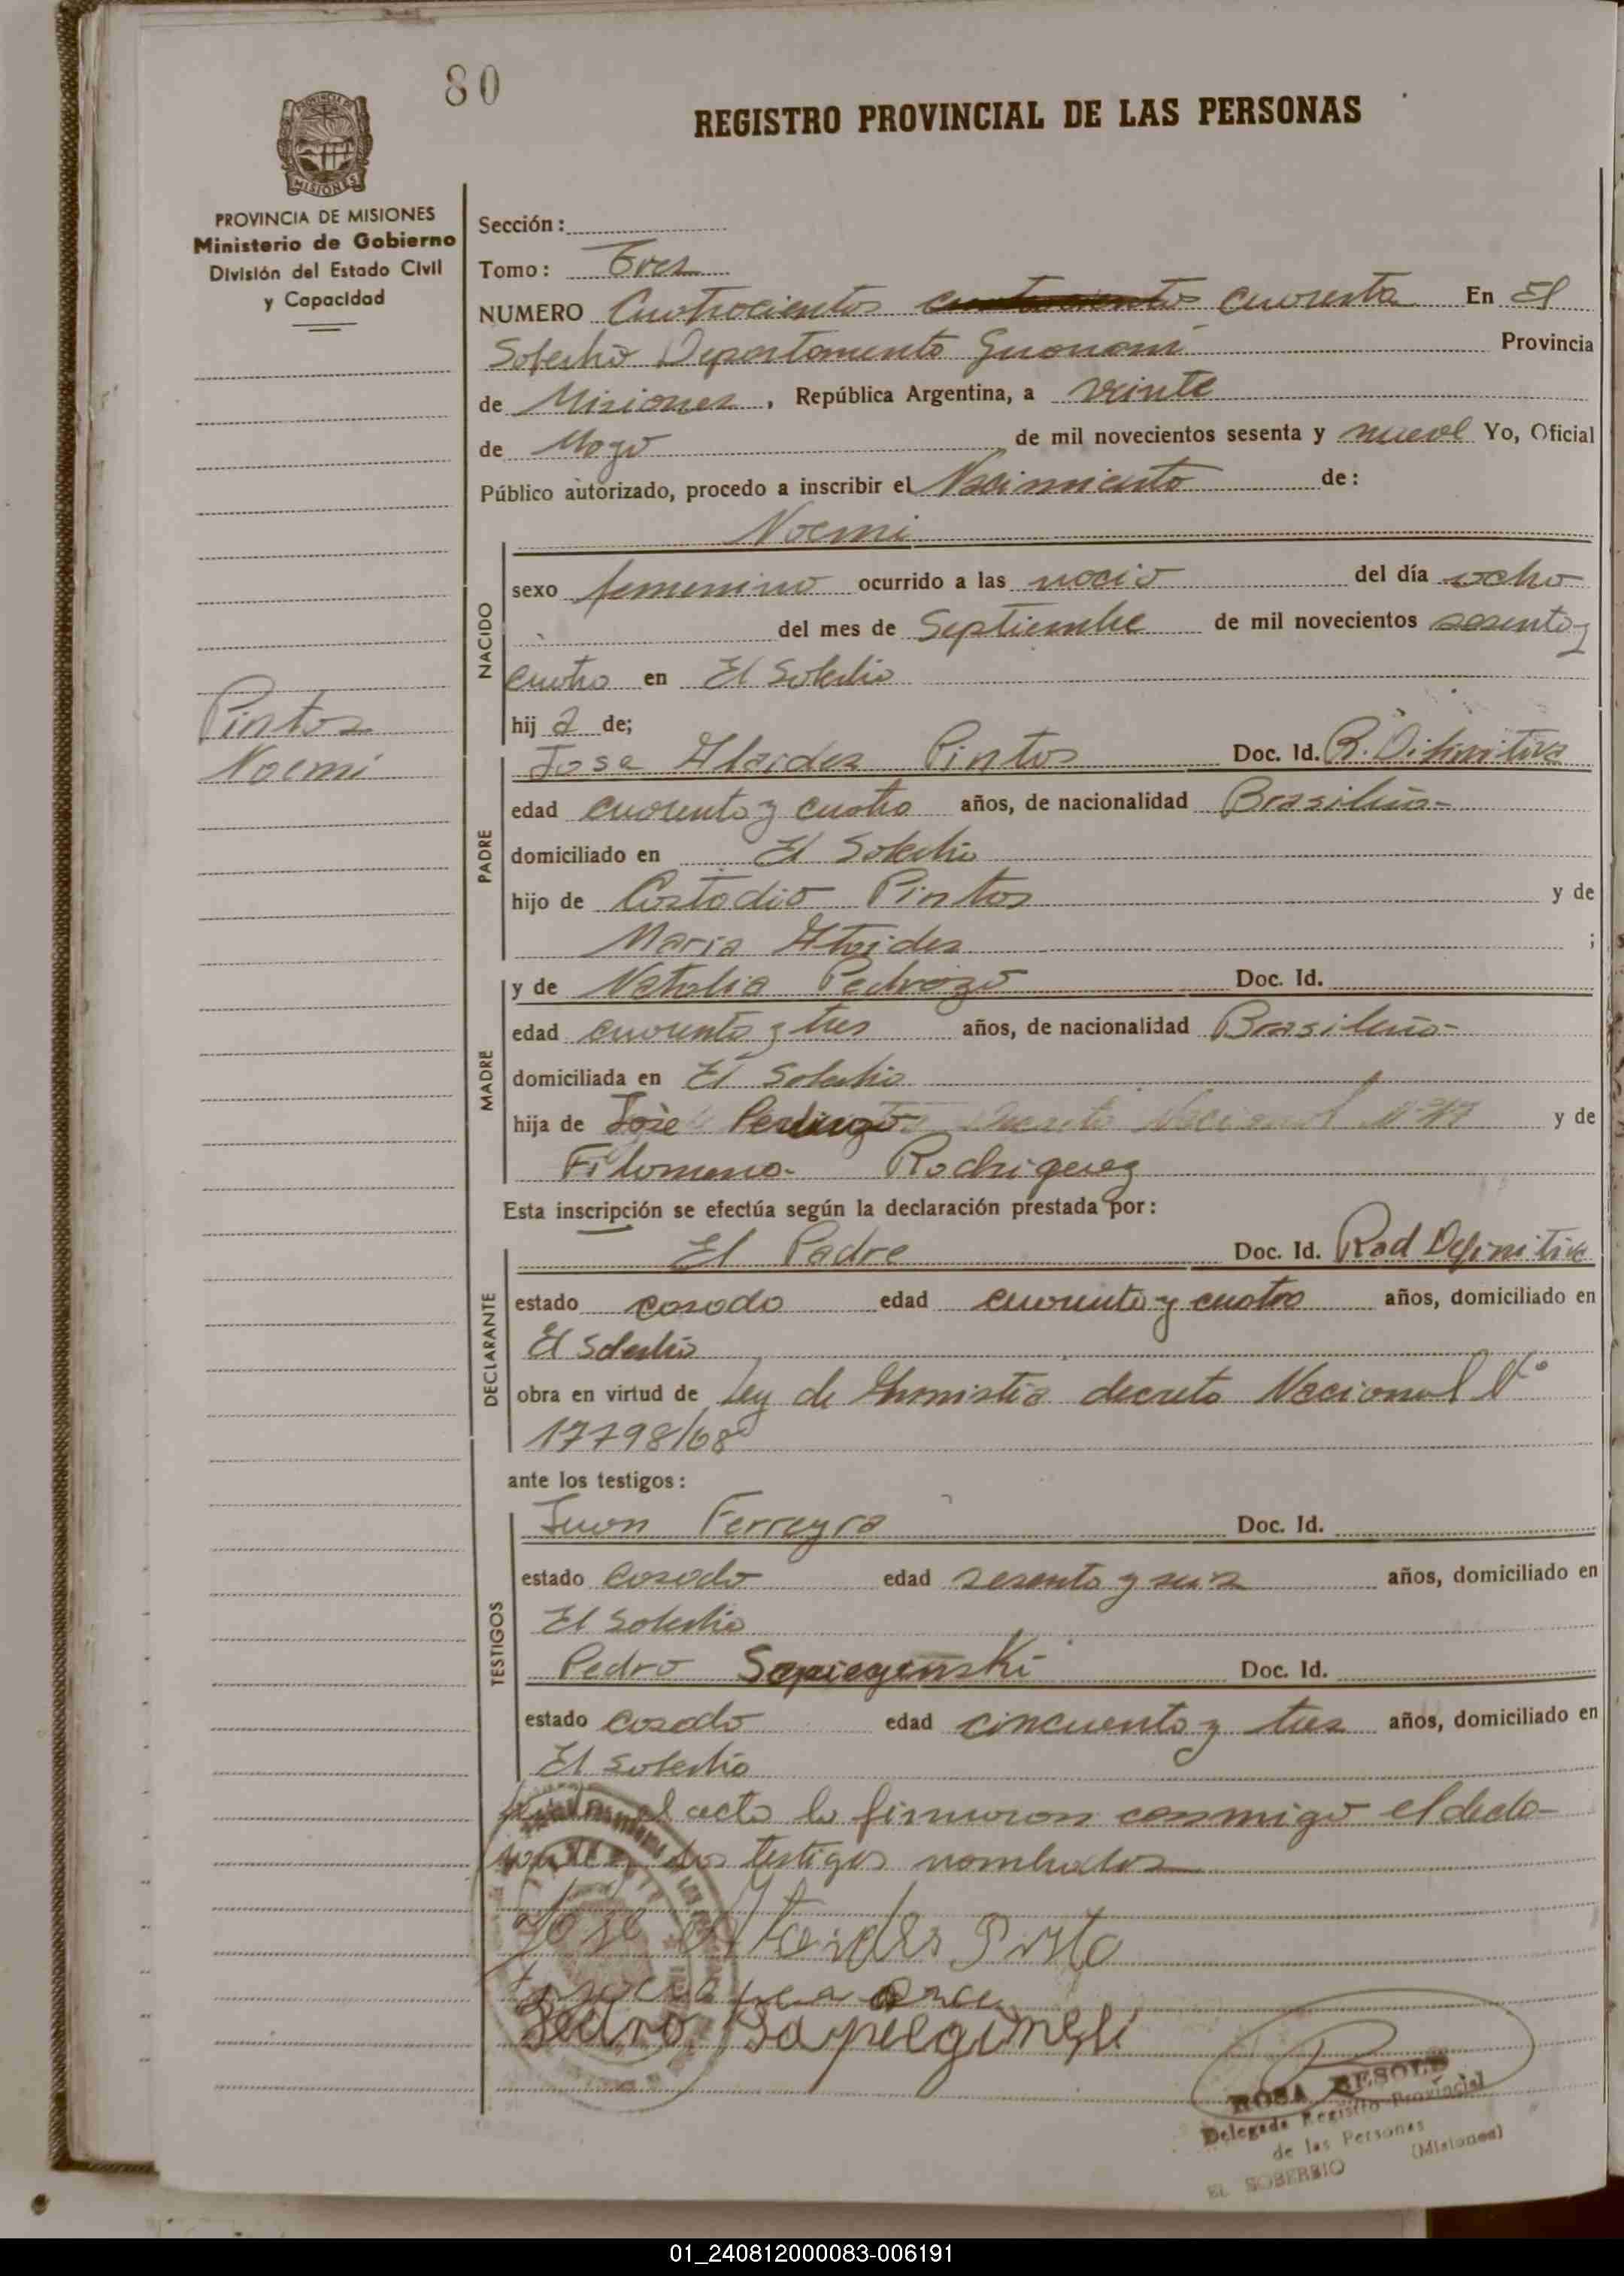 80
REGISTRO PROVINCIAL DE LAS PERSONAS
PROVINCIA DE
MISIONES
PROVINCIA DE MISIONES
Ministerio de Gobierno
División del Estado Civil
y Capacidad
Sección:
Tomo: Tres
NUMERO Cuatrocientos cuarenta En El
Soberbio Departamento Guarani Provincia
de Misiones, República Argentina, a veinte
de Mayo de mil novecientos sesenta y nueve Yo, Oficial
Público autorizado, procedo a inscribir el Nacimiento de:
Noemi
NACIDO
sexo femenino ocurrido a las del día ocho
del mes de Septiembre de mil novecientos sesenta y
cuatro en El Soberbio
Pintos
Noemi
hij a de;
PADRE
Jose Pintos Doc. Id. R. Difinitiva
edad cuarenta y cuatro años, de nacionalidad Brasileña-
domiciliado en El Soberbio
hijo de Custodio Pintos y de
Maria Ataides ;
MADRE
y de Natalia Pedrozo Doc. Id.
edad cuarenta y tres años, de nacionalidad Brasileña-
domiciliada en El Soberbio
hija de José y de
Filomena- Rodriguez
Esta inscripción se efectúa según la declaración prestada por:
DECLARANTE
El Padre Doc. Id. Rad Definitiva
estado casado edad cuarenta y cuatro años, domiciliado en
El Soberbio
obra en virtud de Ley de Amnistia decreto Nacional Nº
17798/68
ante los testigos:
TESTIGOS
Juan Ferreyra Doc. Id.
estado casado edad sesenta y seis años, domiciliado en
El Soberbio
Pedro Doc. Id.
estado casado edad cincuenta y tres años, domiciliado en
El Soberbio
el acta la firmaron conmigo el decla-
rante y los testigos nombrados
Jose Ataides Pinto
Pedro
ROSA BESOLD
Delegada Registro Provincial
de las Personas
EL SOBERBIO (Misiones)
01_240812000083-006191